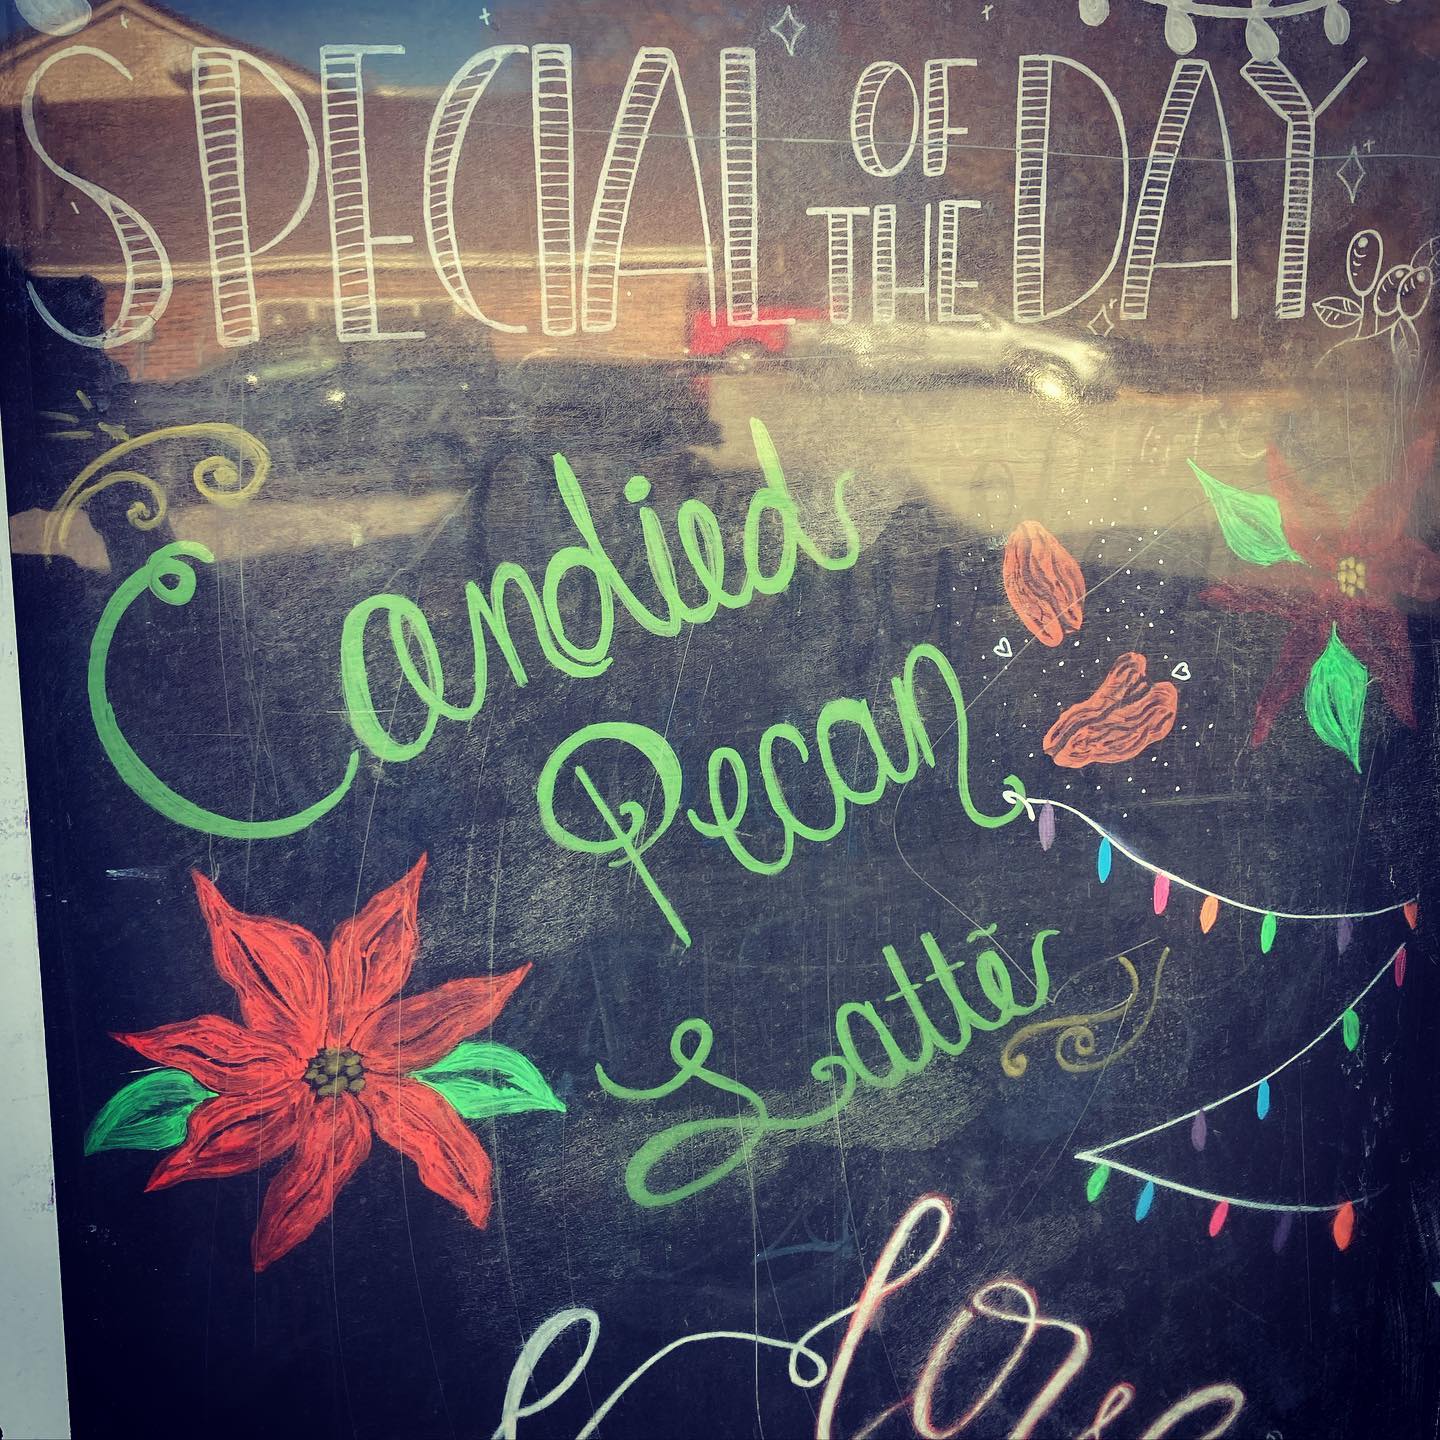 SPECIAL OF THE DAY
Candied
Pecan
Latte
love